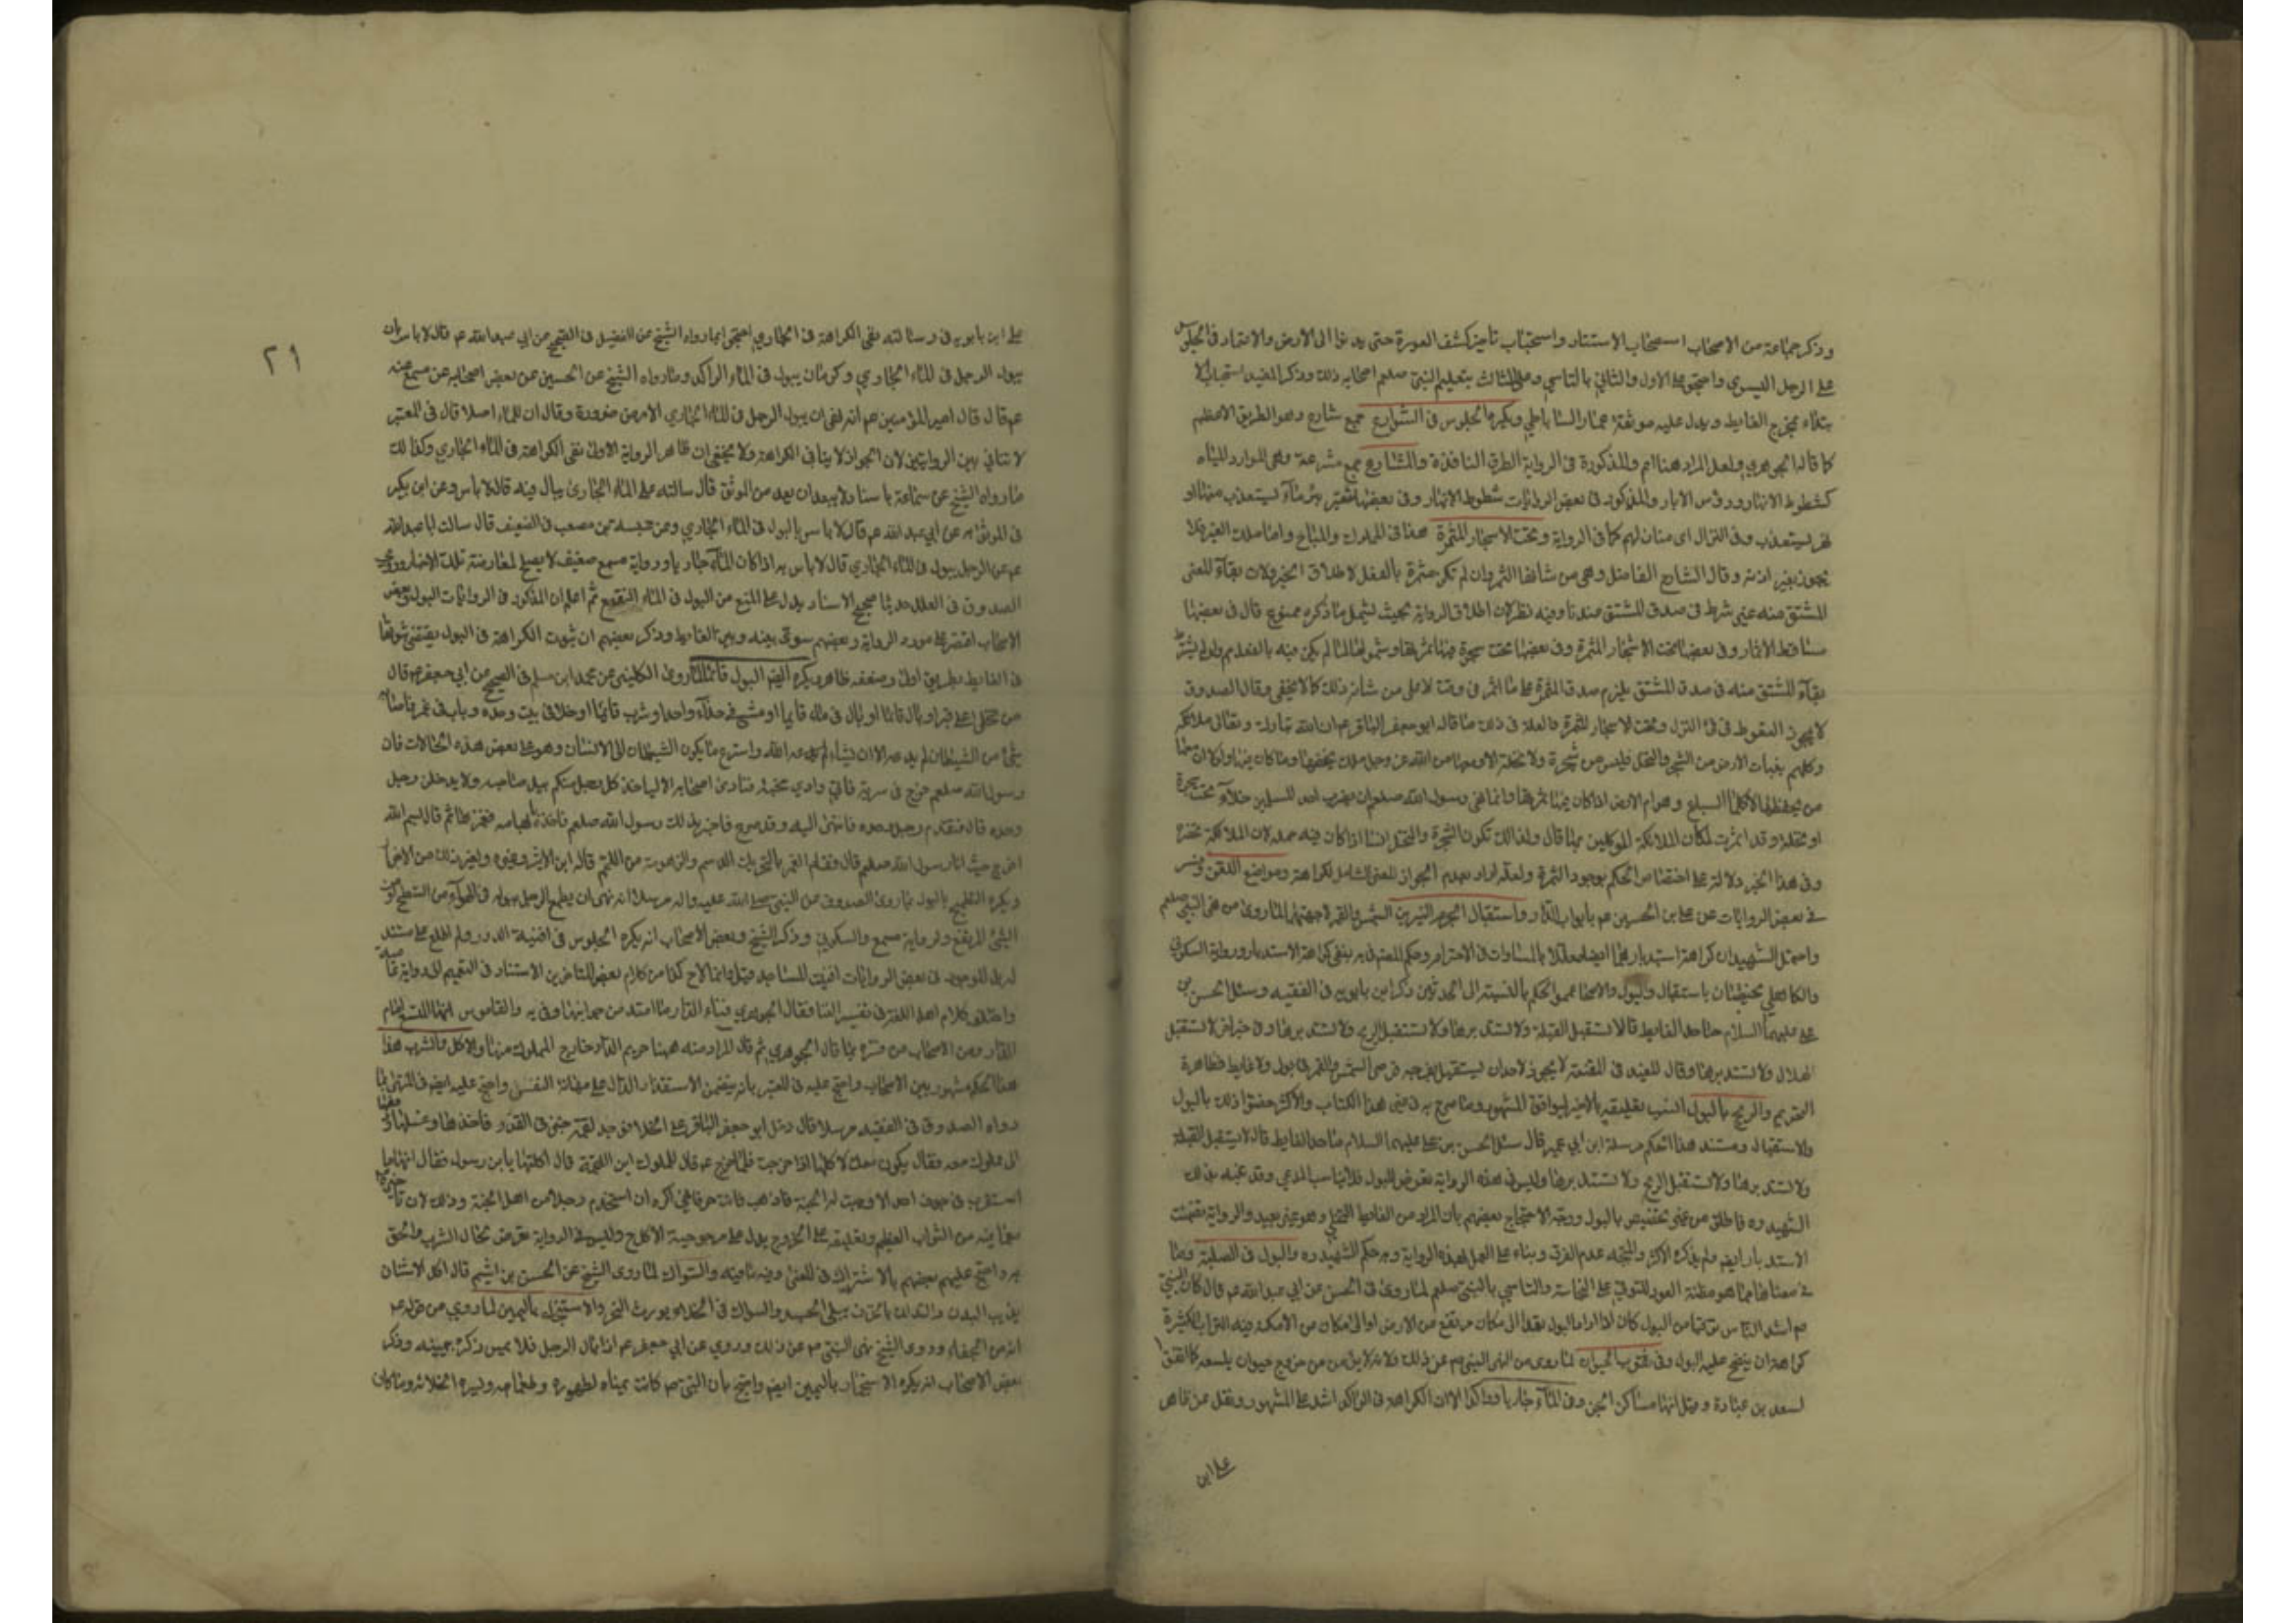 وذكر جماعة من الاصحاب استحباب الاستتار واستحباب تاخير كشف العورة حتى يدنوا الى الارض والاعتماد في الجلوس
على الرجل اليسرى واحتجوا على الاول والثاني بالتاسي وعلى الثالث بتعليم النبي صلعم اصحابه ذلك وذكر المفيد استحباب الا
بتداء بمخرج الغايط ويدل عليه موثقة عمار الساباطي ويكره الجلوس في الشوارع جمع شارع وهو الطريق الاعظم
كما قاله الجوهري ولعل المراد هنا اعم والمذكورة في الرواية الطرق النافذة والمشارع جمع مشرعة وهي الموارد للمياه
كشطوط الانهار ورؤس الابار والمذكور في بعض الروايات شطوط الانهار وفي بعضها شفير بئر ماء يستعذب منها او
نهر يستعذب وفي النزال اى منازلهم كما في الرواية وتحت الاشجار المثمرة هذا في المملوك والمباح واما ملك الغير فلا
يجوز بغير اذنه وقال الشارح الفاضل وهي من شانها الثمر وان لم تكن مثمرة بالفعل لاطلاق الخبر ولان بقاء المعنى
المشتق منه غير شرط في صدق المشتق عندنا وفيه نظر لان اطلاق الرواية بحيث يشمل ما ذكره ممنوع قال في بعضها
مساقط الاثمار وفي بعضها تحت الاشجار المثمرة وفي بعضها تحت شجرة فيها ثمرتها وشمولها لما لم يكن فيه بالفعل
بقاء المشتق منه في صدق المشتق يلزم صدق المثمرة على ما اثمر في وقت لا على من شانه ذلك كما لا يخفى وقال الصدوق
لا يجوز التغوط في فئ النزال وتحت الاشجار المثمرة والعلة في ذلك ما قاله ابو جعفر الباقر عم ان الله تبارك وتعالى ملائكة
وكلهم بنبات الارض من الشجر والنخل فليس من شجرة ولا نخلة الا ومعها من الله عز وجل ملك يحفظها وما كان منها ولولا ان معها
من يحفظها لاكلها السباع وهوام الارض اذا كان فيها ثمرتها وانما نهى رسول الله صلعم ان يضرب احد المسلمين خلاء تحت شجرة
او نخلة وقد اثمرت لمكان الملائكة الموكلين بها قال ولذلك تكون الشجرة والنخل انسا اذا كان فيه حمله لان الملائكة تحضره
وفي هذا الخبر دلالة على اختصاص الحكم بوجود الثمرة ولعله اراد بعدم الجواز المعنى الشامل لكراهة ومواضع اللعن وفسر
في بعض الروايات عن علي بن الحسين عم بابواب الدور واستقبال الجرم النيرين الشمس والقمر لا جهتهما لما روى من نهى النبي صلعم
واحتمل الشهيدان كراهة استدبارهما ايضا معللا بالمساوات في الاحترام وحكم المص في ينفى كراهة الاستدبار ورواية السكوني
والكاهلي يختصان باستقبال والبول والاصحاب عمموا الحكم بالنسبة الى الحدثين ذكر ابن بابويه في الفقيه وسئل الحسن بن
علي عليهما السلام ما حد الغايط قال لا تستقبل القبلة ولا تستدبرها ولا تستقبل الريح ولا تستدبرها وفي خبر اخر لا تستقبل
الهلال ولا تستدبرها وقال المفيد في المقنعة لا يجوز لاحد ان يستقبل بفرجه قرصى الشمس والقمر في بول ولا غايط فظاهره
التحريم والريح بالبول
ولا استقبال ومستند هذا الحكم مرسلة ابن ابي عمير قال سئل الحسن بن علي عليهما السلام ما حد الغايط قال لا تستقبل القبلة
ولا تستدبرها ولا تستقبل الريح ولا تستدبرها وليس في هذه الرواية تعرض للبول فلا يناسب المدعى وقد عنه بذلك
الشهيد ره فاطلق من غير تخصيص بالبول ووجه الاحتجاج بعضهم بان المراد من الغايط التخلي وهو غير بعيد والرواية تضمنت
الاستدبار ايضم ولم يذكره الاكثر والمتجه عدم الفرق وبناء على العمل بهذه الرواية وبه حكم الشهيد ره والبول في الصلبة وما
في معناها مما هو مظنة العود للتوقي على النجاسة والتاسي بالنبي صلعم لما روى في الحسن عن ابي عبد الله عم قال كان النبي
ص اشد الناس توقيا من البول كان اذا اراد البول يعمد الى مكان مرتفع من الارض او الى مكان من الامكنة فيه التراب الكثيرة
كراهة ان ينضح عليه البول وفي ثقوب الحيوان لما روى من النهى النبي ص عن ذلك ولانه لا يؤمن من خروج حيوان يلسعه كما اتفق
لسعد بن عبادة وقيل انها مساكن الجن وفي الماء جاريا وراكدا الا ان الكراهة في الراكد اشد على المشهور ونقل عن ظاهر
على ابن
٢١
على ابن بابويه في رسالته نفى الكراهة في الجاري احتجوا بما رواه الشيخ عن الفضيل في الصحيح عن ابي عبد الله عم قال لا باس بان
يبول الرجل في الماء الجاري وكره ان يبول في الماء الراكد وما رواه الشيخ عن الحسين عن بعض اصحابه عن مسمع عنه
عم قال قال امير المؤمنين عم انه نهى ان يبول الرجل في الماء الجاري الا من ضرورة وقال ان للماء اهلا قال في المعتبر
لا تنافي بين الروايتين لان الجواز لا ينافي الكراهة ولا يخفى ان ظاهر الرواية الاولى نفى الكراهة في الماء الجاري وكذلك
ما رواه الشيخ عن سماعة باسناد لا يبعد ان يعد من الموثق قال سالته عن الماء الجاري يبال فيه قال لا باس وعن ابن بكير
في الموثق به عن ابي عبد الله عم قال لا باس بالبول في الماء الجاري وعن عنبسة بن مصعب في الضعيف قال سالت ابا عبد الله
عم عن الرجل يبول في الماء الجاري قال لا باس به اذا كان الماء جاريا ورواية مسمع ضعيف لا يصلح لمعارضة تلك الاخبار وروى
الصدوق في العلل حديثا صحيح الاسناد يدل على المنع من البول في الماء النقيع ثم اعلم ان المذكور في الروايات البول فبعض
الاصحاب اقتصر على مورد الرواية وبعضهم سوى بينه وبين الغايط وذكر بعضهم ان ثبوت الكراهة في البول يقتضى ثبوتها
في الغايط بطريق اولى وضعفه ظاهر ويكره ايضم البول قائما لما روى الكليني عن محمد ابن مسلم في الصحيح عن ابي جعفر عم قال
من تخلى على قبر او بال قائما او بال في ماء قايما او مشى في حذاء واحد او شرب قايما او خلا في بيت وحده وبات على غمر فاصابه
شئ من الشيطان لم يدعه الا ان يشاء الله واسرع ما يكون الشيطان الى الانسان وهو على بعض هذه الحالات فان
رسول الله صلعم خرج في سرية فاتى وادي مجنة فنادى اصحابه الا لياخذ كل رجل منكم بيد صاحبه ولا يدخلن رجل
وحده قال فتقدم رجل وحده فانتهى اليه وقد صرع فاخبر بذلك رسول الله صلعم فاخذ بابهامه فغمزها ثم قال بسم الله
اخرج حيث انا رسول الله صلعم قال فقام الغمر بالتحريك الدسم والزهومة من اللحم قاله ابن الاثير وغيره ولغير ذلك من الاخبار
ويكره التطميح بالبول لما روى الصدوق عن النبي صلى الله عليه واله مرسلا انه نهى ان يطمح الرجل ببوله في الهواء من السطح او من
الشئ المرتفع ولرواية مسمع والسكوني وذكر الشيخ وبعض الاصحاب انه يكره الجلوس في افنية الدور ولم اطلع على مستند
له بل الموجود في بعض الروايات افنية المساجد
واختلف كلام اهل اللغة في تفسير الفنا فقال الجوهري فناء الدار ما امتد من جوانبها
الدار ومن الاصحاب من فسره بما قال الجوهري ثم قال المراد منه ههنا حريم الدار خارج المملوك منها والاكل والشرب هذا
هذا الحكم مشهور بين الاصحاب واحتج عليه في المعتبر بانه يتضمن الاستقذار الدال على مهانة النفس واحتج عليه ايضم في المنتهى بما
رواه الصدوق في الفقيه مرسلا قال دخل ابو جعفر الباقر عم الخلا فوجد لقمة خبز في القذر فاخذها وغسلها ودفعها
الى مملوك معه فقال يكون معك لاكلها اذا خرجت فلما خرج عم قال للمملوك اين اللقمة قال اكلتها يا ابن رسول فقال انها ما
استقرت في جوف احد الا وجبت له الجنة فاذهب فانت حر فاني اكره ان استخدم رجلا من اهل الجنة وذلك لان تاخيره
مع ما فيه من الثواب العظيم وتعليقه على الخروج يدل على مرجوحية الاكل ح وليس في الرواية تعرض بحال الشرب والحق
به واحتج عليهم بعضهم بالاشتراك في المعنى وفيه ما فيه والسواك لما روى الشيخ عن الحسن بن اشيم قال اكل الاشنان
يذيب البدن والتدلك بالخزف يبلى الجسد والسواك في الخلاء يورث البخر والاستنجاء باليمين لما روي من قوله عم
انه من الجفاء وروى الشيخ نهى النبي ص عن ذلك وروي عن ابي جعفر عم اذا بال الرجل فلا يمس ذكره بيمينه وذكر
بعض الاصحاب انه يكره الاستجمار باليمين ايضم واحتج بان النبي ص كانت يمناه لطهوره وطعامه ويسره الخلائه وما كان